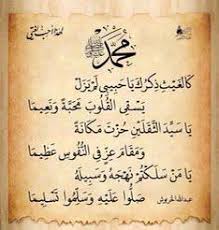 محمد ﷺ
كَالْغَيْثِ ذِكْرُكَ يَا حَبِيبِي لَمْ يَزَلْ
يَسْقِي الْقُلُوبَ مَحَبَّةً وَنَعِيمَا
يَا سَيِّدَ الثَّقَلَيْنِ حُزْتَ مَكَانَةً
وَمَقَامَ عِزٍّ فِي النُّفُوسِ عَظِيمَا
يَا مَنْ سَلَكْتُمْ نَهْجَهُ وَسَبِيلَهُ
صَلُّوا عَلَيْهِ وَسَلِّمُوا تَسْلِيمَا